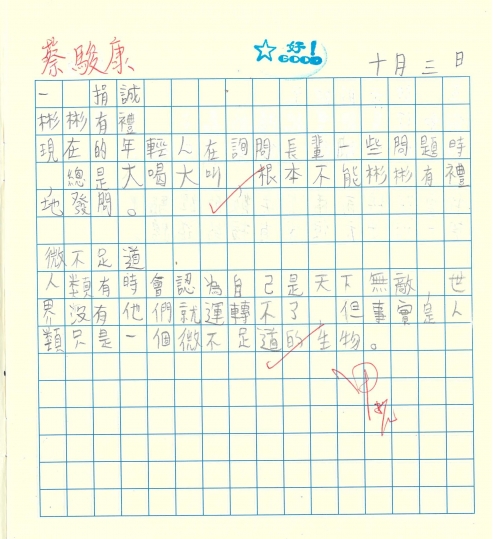 蔡駿康
好!
GOOD
十月三日
一 捐誠
彬彬有禮
現在的年輕人在詢問長輩一些問題時
,總是大喝大叫,根本不能彬彬有禮
地發問。
微不足道.
人類有時會認為自己是天下無敵,世
界沒有他們就運轉不了,但事實是人
類只是一個微不足道的生物。